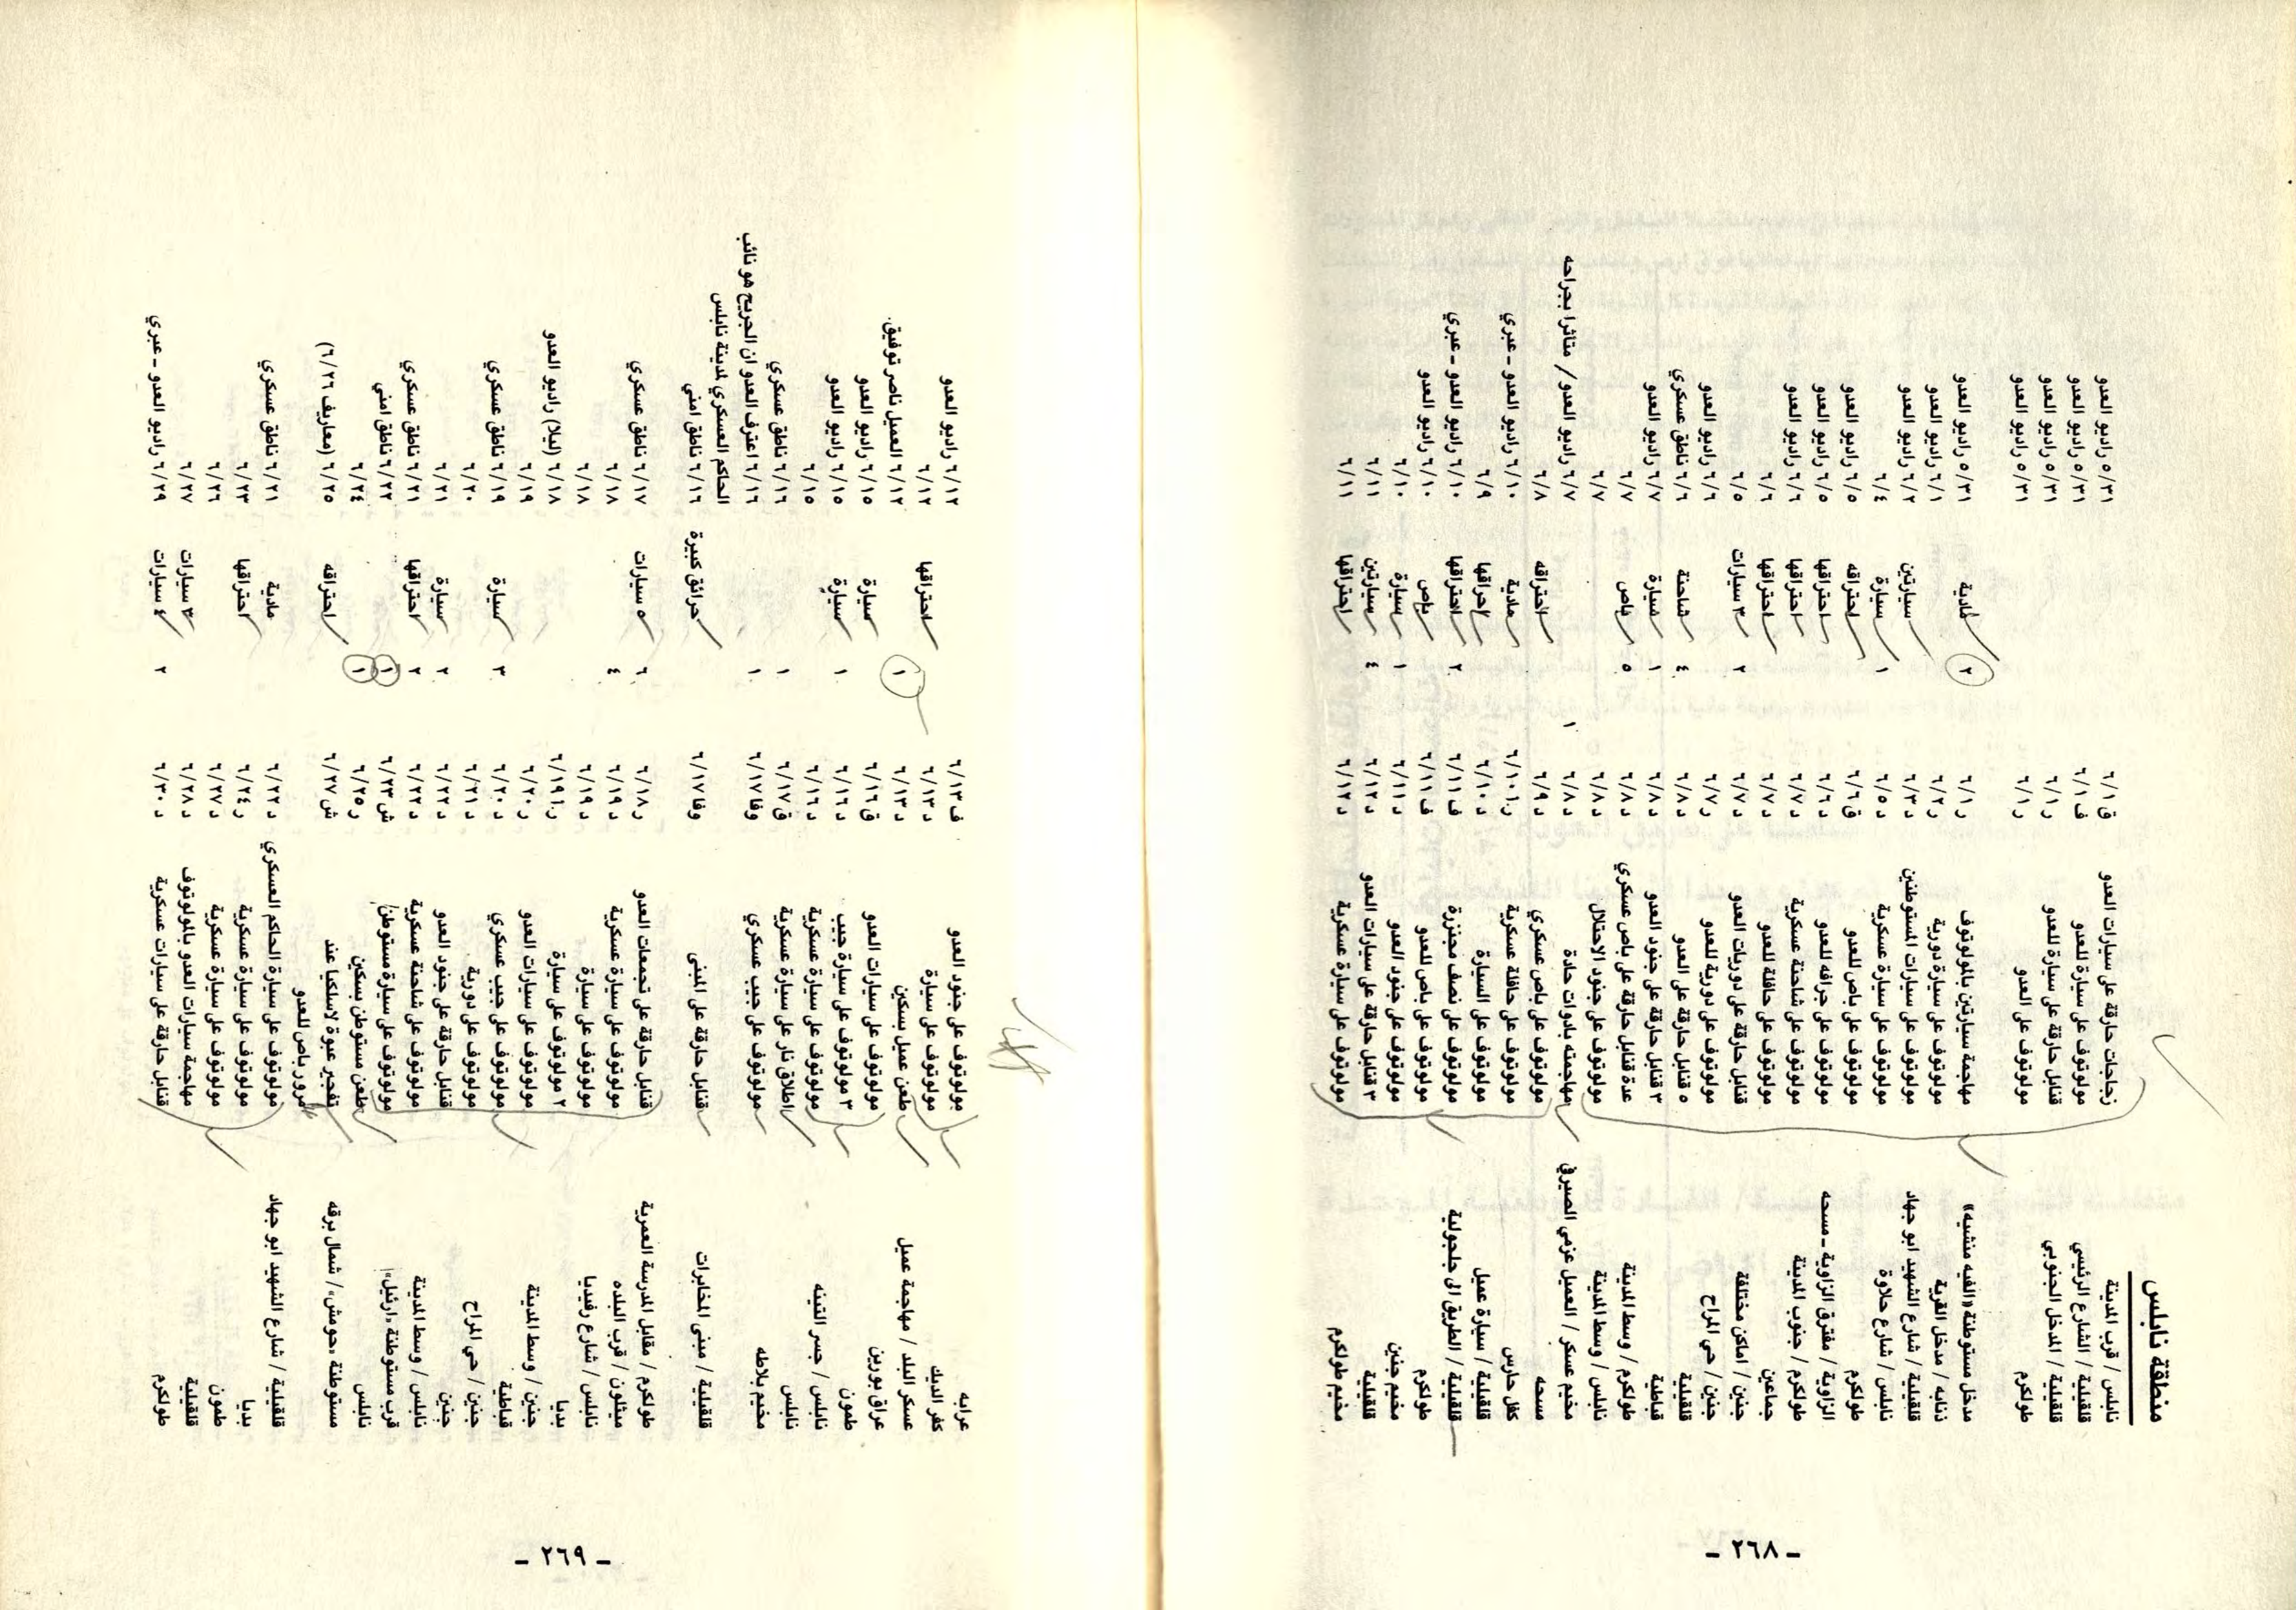 منطقة نابلس
نابلس / قرب المدينة زجاجات حارقة على سيارات العدو ق ٦/١ ٥/٣١ راديو العدو
قلقيلية / الشارع الرئيسي مولوتوف على سيارة للعدو ف ٦/١ ٥/٣١ راديو العدو
قلقيلية / المدخل الجنوبي قنابل حارقة على سيارة للعدو ر ٦/١ ٥/٣١ راديو العدو
طولكرم مولوتوف على العدو ر ٦/١ ٥/٣١ راديو العدو
مدخل مستوطنة «الفيه منشيه» مهاجمة سيارتين بالمولوتوف ر ٦/١ ٢ مادية ٥/٣١ راديو العدو
ذنابه / مدخل القرية مولوتوف على سيارة دورية ر ٦/٢ ٦/١ راديو العدو
قلقيلية / شارع الشهيد ابو جهاد مولوتوف على سيارات المستوطنين د ٦/٣ سيارتين ٦/٢ راديو العدو
نابلس / شارع حلاوة مولوتوف على سيارة عسكرية د ٦/٥ ١ سيارة ٦/٤
طولكرم مولوتوف على باص للعدو ق ٦/٦ احتراقه ٦/٥ راديو العدو
الزاوية / مفترق الزاوية ـ مسحه مولوتوف على جرافه للعدو د ٦/٦ احتراقها ٦/٥ راديو العدو
طولكرم / جنوب المدينة مولوتوف على شاحنة عسكرية د ٦/٧ احتراقها ٦/٦ راديو العدو
جماعين مولوتوف على حافلة للعدو د ٦/٧ احتراقها ٦/٦
جنين / اماكن مختلفة قنابل حارقة على دوريات العدو د ٦/٧ ٢ ٣ سيارات ٦/٥
جنين / حي المراح مولوتوف على دورية للعدو ر ٦/٧ ٦/٦ راديو العدو
قلقيلية ٥ قنابل حارقة على العدو د ٦/٨ ٤ شاحنة ٦/٦ ناطق عسكري
قباطية ٣ قنابل حارقة على جنود العدو د ٦/٨ ١ سيارة ٦/٧ راديو العدو
طولكرم / وسط المدينة عدة قنابل حارقة على باص عسكري د ٦/٨ ٥ باص ٦/٧
نابلس / وسط المدينة مولوتوف على جنود الاحتلال د ٦/٨ ٦/٧
مخيم عسكر / العميل عزمي الصيرفي مهاجمته بادوات حادة د ٦/٨ ١ ٦/٧ راديو العدو / متاثرا بجراحه
مسحه مولوتوف على باص عسكري د ٦/٩ احتراقه ٦/٨
كفل حارس مولوتوف على حافلة عسكرية ر.ا ٦/١٠ مادية ٦/١٠ راديو العدو ـ عبري
قلقيلية / سيارة عميل مولوتوف على السيارة د ٦/١٠ احراقها ٦/٩
قلقيلية / الطريق الى جلجولية مولوتوف على نصف مجنزرة ف ٦/١١ ٢ احتراقها ٦/١٠ راديو العدو ـ عبري
طولكرم مولوتوف على باص للعدو ف ٦/١١ باص ٦/١٠ راديو العدو
مخيم جنين مولوتوف على جنود العدو د ٦/١١ ١ سيارة ٦/١٠
قلقيلية ٣ قنابل حارقة على سيارات العدو د ٦/١٢ ٤ سيارتين ٦/١١
مخيم طولكرم مولوتوف على سيارة عسكرية د ٦/١٢ احتراقها ٦/١١
ـ ٢٦٨ ـ
عرابه مولوتوف على جنود العدو ف ٦/١٣ ٦/١٢ راديو العدو
كفر الديك مولوتوف على سيارة د ٦/١٣ احتراقها ٦/١٢
عسكر البلد / مهاجمة عميل طعن عميل بسكين د ٦/١٣ ١ ٦/١٢ العميل ناصر توفيق.
عراق بورين مولوتوف على سيارات العدو ق ٦/١٦ سيارة ٦/١٥ راديو العدو
طمون ٣ مولوتوف على سيارة جيب د ٦/١٦ ١ سيارة ٦/١٥ راديو العدو
نابلس / جسر التينه مولوتوف على سيارة عسكرية د ٦/١٦ ٦/١٥
نابلس اطلاق نار على سيارة عسكرية ق ٦/١٧ ١ ٦/١٦ ناطق عسكري
مخيم بلاطه مولوتوف على جيب عسكري وفا ٦/١٧ ١ ٦/١٦ اعترف العدو ان الجريح هو نائب
الحاكم العسكري لمدينة نابلس
قلقيلية / مبنى المخابرات قنابل حارقة على المبنى وفا ٦/١٧ حرائق كبيرة ٦/١٦ ناطق امني
طولكرم / مقابل المدرسة العمرية قنابل حارقة على تجمعات العدو ر ٦/١٨ ٦ ٥ سيارات ٦/١٧ ناطق عسكري
ميثلون / قرب البلده مولوتوف على سيارة عسكرية د ٦/١٩ ٤ ٦/١٨
نابلس / شارع رفيديا مولوتوف على سيارة د ٦/١٩ ٦/١٨
بديا ٢ مولوتوف على سيارة ر.ا ٦/١٩ ٦/١٨ (ليلا) راديو العدو
جنين / وسط المدينة مولوتوف على سيارات العدو ر ٦/٢٠ ٦/١٩
قباطية مولوتوف على جيب عسكري د ٦/٢٠ ٣ سيارة ٦/١٩ ناطق عسكري
جنين / حي المراح مولوتوف على دورية د ٦/٢١ ٦/٢٠
جنين قنابل حارقة على جنود العدو د ٦/٢٢ ٢ سيارة ٦/٢١
نابلس / وسط المدينة مولوتوف على شاحنة عسكرية د ٦/٢٢ ٢ احتراقها ٦/٢١ ناطق عسكري
قرب مستوطنة «ارئيل» مولوتوف على سيارة مستوطن ش ٦/٢٣ ١ ٦/٢٢ ناطق امني
نابلس طعن مستوطن بسكين ر ٦/٢٥ ١ ٦/٢٤
مستوطنة «حومش» / شمال برقه تفجير عبوة لاسلكيا عند ش ٦/٢٧ احتراقه ٦/٢٥ (معاريف ٦/٢٦)
مرور باص للعدو
قلقيلية / شارع الشهيد ابو جهاد مولوتوف على سيارة الحاكم العسكري د ٦/٢٢ مادية ٦/٢١ ناطق عسكري
بديا مولوتوف على سيارة عسكرية ر ٦/٢٤ احتراقها ٦/٢٣
طمون مولوتوف على سيارة عسكرية د ٦/٢٧ ٦/٢٦
قلقيلية مهاجمة سيارات العدو بالمولوتوف د ٦/٢٨ ٣ سيارات ٦/٢٧
طولكرم قنابل حارقة على سيارات عسكرية د ٦/٣٠ ٢ ٤ سيارات ٦/٢٩ راديو العدو ـ عبري
ـ ٢٦٩ ـ